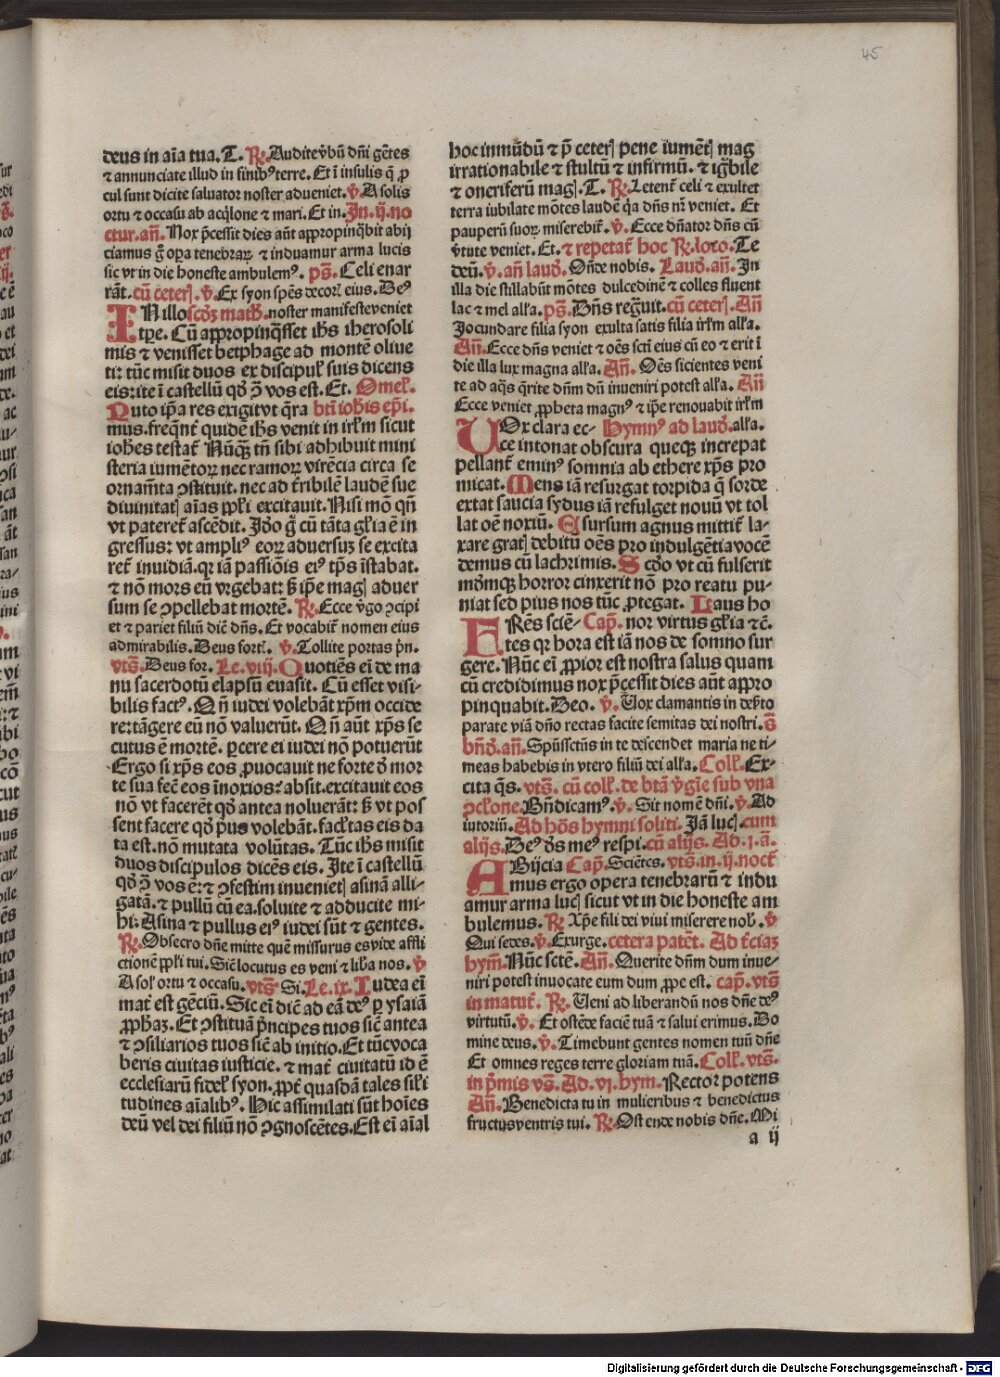 45
deus in aīa tua. T. ℟. Audite v̄bū dn̄i gētes
⁊ annunciate illud in finibꝰ terre. Et ī insulis q̄ ꝓ
cul sunt dicite saluator noster adueniet. ℣. A solis
ortu ⁊ occasu ab aq̇lone ⁊ mari. Et in. In. ij. no
ctur. an̄. Nox p̄cessit dies aūt appropinq̇bit abij
ciamus g̊ oꝑa tenebraꝝ ⁊ induamur arma lucis
sic vt in die honeste ambulemꝰ. ps̄. Celi enar
rāt. cū ceterꝭ. ℣. Ex syon spēs decorꝭ eius. Deꝰ
IN illo scd̄ꝫ math̄. noster manifeste veniet
tꝑe. Cū appropinq̄sset ih̄s iherosoli
mis ⁊ venisset betphage ad montē oliue
ti: tūc misit duos ex discipulꝭ suis dicens
eis: ite ī castellū qd̄ ꝯ̄ vos est. Et. Omelꝭ.
Puto ip̄a res exigit vt q̄ra btī ioh̄is ep̄i.
mus. freq̄nt̄ quidē ih̄s venit in irl̄m sicut
ioh̄es testat̄ Nūꝙꝫ tn̄ sibi adhibuit mini
steria iumētoꝝ nec ramoꝝ virēcia circa se
ornam̄ta ꝯstituit. nec ad t̄ribilē laudē sue
diuinitatꝭ aīas ppl̄i excitauit. Nisi mō qn̄
vt pateret̄ ascēdit. Id̄o q̄ cū tāta gl̄ia ē in
gressus: vt ampliꝰ eoꝝ aduersuꝫ se excita
ret̄ inuidiā. qꝛ iā passiōis eiꝰ tp̄s īstabat.
⁊ nō mors eū vrgebat: sꝫ ip̄e magꝭ aduer
sum se ꝯpellebat mortē. ℟. Ecce v̄go ꝯcipi
et ⁊ pariet filiū dic̄ dn̄s. Et vocabit̄ nomen eius
admirabilis. Deus fortꝭ. ℣. Tollite portas p̄n.
vts̄. Deus for. Le. viij. Quotiēs ei̅ de ma
nu sacerdotū elapsū euasit. Cū esset visi-
bilis factꝰ. Qn̄ iudei volebāt xp̄m occide
re: tāgere eū nō valuerūt. Qn̄ aūt xp̄s se
cutus ē mortē. ꝑcere ei iudei nō potuerūt
Ergo si xp̄s eos ꝓuocauit ne forte d̄ mor
te sua fec̄ eos īnoxios: absit. excitauit eos
nō vt facerēt qd̄ antea noluerāt: sꝫ vt pos
sent facere qd̄ p̄us volebāt. facl̄tas eis da
ta est. nō mutata volūtas. Tūc ih̄s misit
duos discipulos dicēs eis. Ite ī castellū
qd̄ ꝯ̄ vos ē: ⁊ ꝯfestim inuenietꝭ asinā alli-
gatā. ⁊ pullū cū ea. soluite ⁊ adducite mi-
hi. Asina ⁊ pullus eiꝰ iudei sūt ⁊ gentes.
℟. Obsecro dn̄e mitte quē missurus es vide affli
ctionē ppl̄i tui. Sic̄ locutus es veni ⁊ lib̄a nos. ℣
A solꝭ ortu ⁊ occasu. vts̄ Si. Le. ix. Iudea ei̅
mat̄ est gēciū. Sic ei̅ dic̄ ad eā deꝰ ꝑ ysaiā
ꝓph̄aꝫ. Et ꝯstituā p̄ncipes tuos sic̄ antea
⁊ ꝯsiliarios tuos sic̄ ab initio. Et tūc voca
beris ciuitas iusticie. ⁊ mat̄ ciuitatū id ē
ecclesiarū fidelꝭ syon. ꝓpt̄ quasdā tales sil̄i
tudines aīalibꝰ. Hic assimilati sūt hoīes
deū vel dei filiū nō ꝯgnoscētes. Est ei̅ aīal
hoc inmūdū ⁊ p̄ ceterꝭ pene iumētꝭ mag
irrationabile ⁊ stultū ⁊ infirmū. ⁊ ig̅bile
⁊ oneriferū magꝭ. T. ℟. Letent̄ celi ⁊ exultet
terra iubilate mōtes laudē q̇a dn̄s nr̄ veniet. Et
pauperū suoꝝ miserebit̄. ℣. Ecce dn̄ator dn̄s cū
v̄tute veniet. Et. ⁊ repetat̄ hoc ℟. loco. Te
deū. ℣. an̄ laud̄. On̄de nobis. Laud̄. an̄. In
illa die stillabūt mōtes dulcedinē ⁊ colles fluent
lac ⁊ mel all̄a. ps̄. Dn̄s reg̅uit. cū ceterꝭ. An̄
Jocundare filia syon exulta satis filia irl̄m all̄a.
An̄. Ecce dn̄s veniet ⁊ oēs scti̅ eius cū eo ⁊ erit ī
die illa lux magna all̄a. An̄. Oēs sicientes veni
te ad aq̄s q̄rite dn̄m dū inueniri potest all̄a. An̄
Ecce veniet ꝓpheta magnꝰ ⁊ ip̄e renouabit irl̄m
VOx clara ec- Hymnꝰ ad laud̄. all̄a.
ce intonat obscura queqꝫ increpat
pellant̄ eminꝰ somnia ab ethere xp̄s pro
micat. Mens iā resurgat torpida q̄ sorde
extat saucia sydus iā refulget nouū vt tol
lat oē noxiū. E sursum agnus mittit̄ la-
xare gratꝭ debitū oēs pro indulgētia vocē
demus cū lachrimis. Scd̄o vt cū fulserit
mūdumqꝫ horror cinxerit nō pro reatu pu-
niat sed pius nos tūc ꝓtegat. Laus ho
FRēs sciē- Cap̄. nor virtus gl̄ia ⁊c̄.
tes qꝛ hora est iā nos de somno sur
gere. Nūc ei̅ ꝓpior est nostra salus quam
cū credidimus nox p̄cessit dies aūt appro
pinquabit. Deo. ℣. Vox clamantis in deẜto
parate viā dn̄o rectas facite semitas dei nostri. S̄
bn̄d̄. an̄. Spūssctūs in te descendet maria ne ti-
meas habebis in vtero filiū dei all̄a. Collꝭ. Ex-
cita q̄s. vts̄. cū collꝭ. de btā v̄gīe sub vna
ꝯcl̄one. Bn̄dicamꝰ. ℣. Sit nomē dn̄i. ℣. Ad
iutoriū. Ad hōs hymni soliti. Iā lucꝭ. cum
alijs. Deꝰ d̄s meꝰ respi. cū alijs. Ad. j. ā.
ABijcia Cap̄. Sciētes. vts̄. in. ij. noct̄
mus ergo opera tenebrarū ⁊ indu
amur arma lucꝭ sicut vt in die honeste am
bulemus. ℟. Xp̄e fili dei viui miserere nob̄. ℣
Qui sedes. ℣. Exurge. cetera patēt. Ad t̄ciaꝫ
hym̄. Nūc sctē. An̄. Querite dn̄m dum inue-
niri potest inuocate eum dum ꝓpe est. cap̄. vts̄
in matut̄. ℟. Veni ad liberandū nos dn̄e deꝰ
virtutū. ℣. Et ostēde faciē tuā ⁊ salui erimus. Do
mine deus. ℣. Timebunt gentes nomen tuū dn̄e
Et omnes reges terre gloriam tuā. Collꝭ. vts̄.
in p̄mis vs̄. Ad. vj. hym. Rector potens
An̄. Benedicta tu in mulieribus ⁊ benedictus
fructus ventris tui. ℟. Ostende nobis dn̄e. Mi
a ij
Digitalisierung gefördert durch die Deutsche Forschungsgemeinschaft - DFG